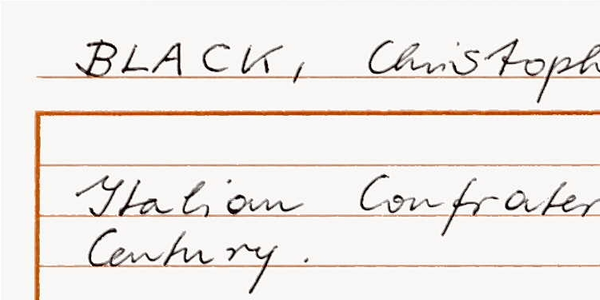 BLACK, Christoph
Italian Confrater
Century.